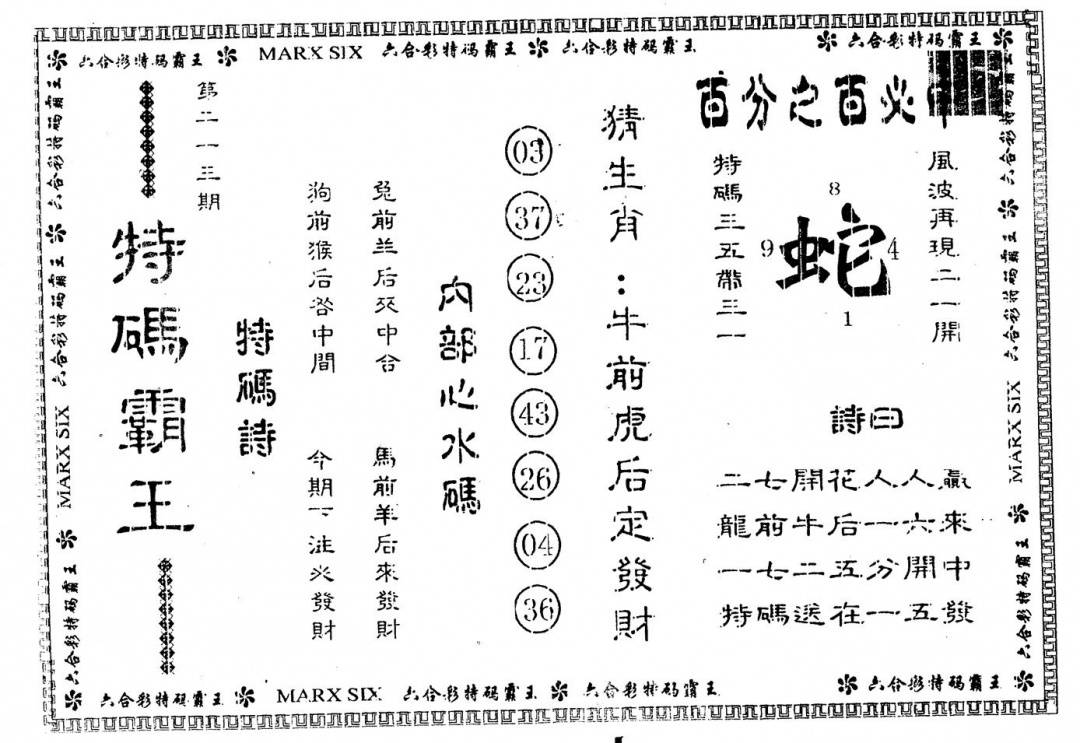 六合彩特码霸王 MARX SIX 六合彩特码霸王 六合彩特码霸王 六合彩特码霸王
百分之百必
風波再現二一開
8
9 蛇 4
1
特碼三五帶三一
詩曰
二七開花人人贏
龍前牛后一六來
一七二五分開中
特碼送在一五發
猜生肖:牛前虎后定發財
03
37
23
17
43
26
04
36
內部心水碼
兔前羊后死中合
馬前羊后來發財
狗前猴后咎中間
今期下注必發財
特碼詩
第二一三期
特碼霸王
六合彩特码霸王 六合彩特码霸王 MARX SIX 六合彩特码霸王
六合彩特码霸王 六合彩特码霸王 MARX SIX 六合彩特码霸王
六合彩特码霸王 MARX SIX 六合彩特码霸王 六合彩特码霸王 六合彩特码霸王